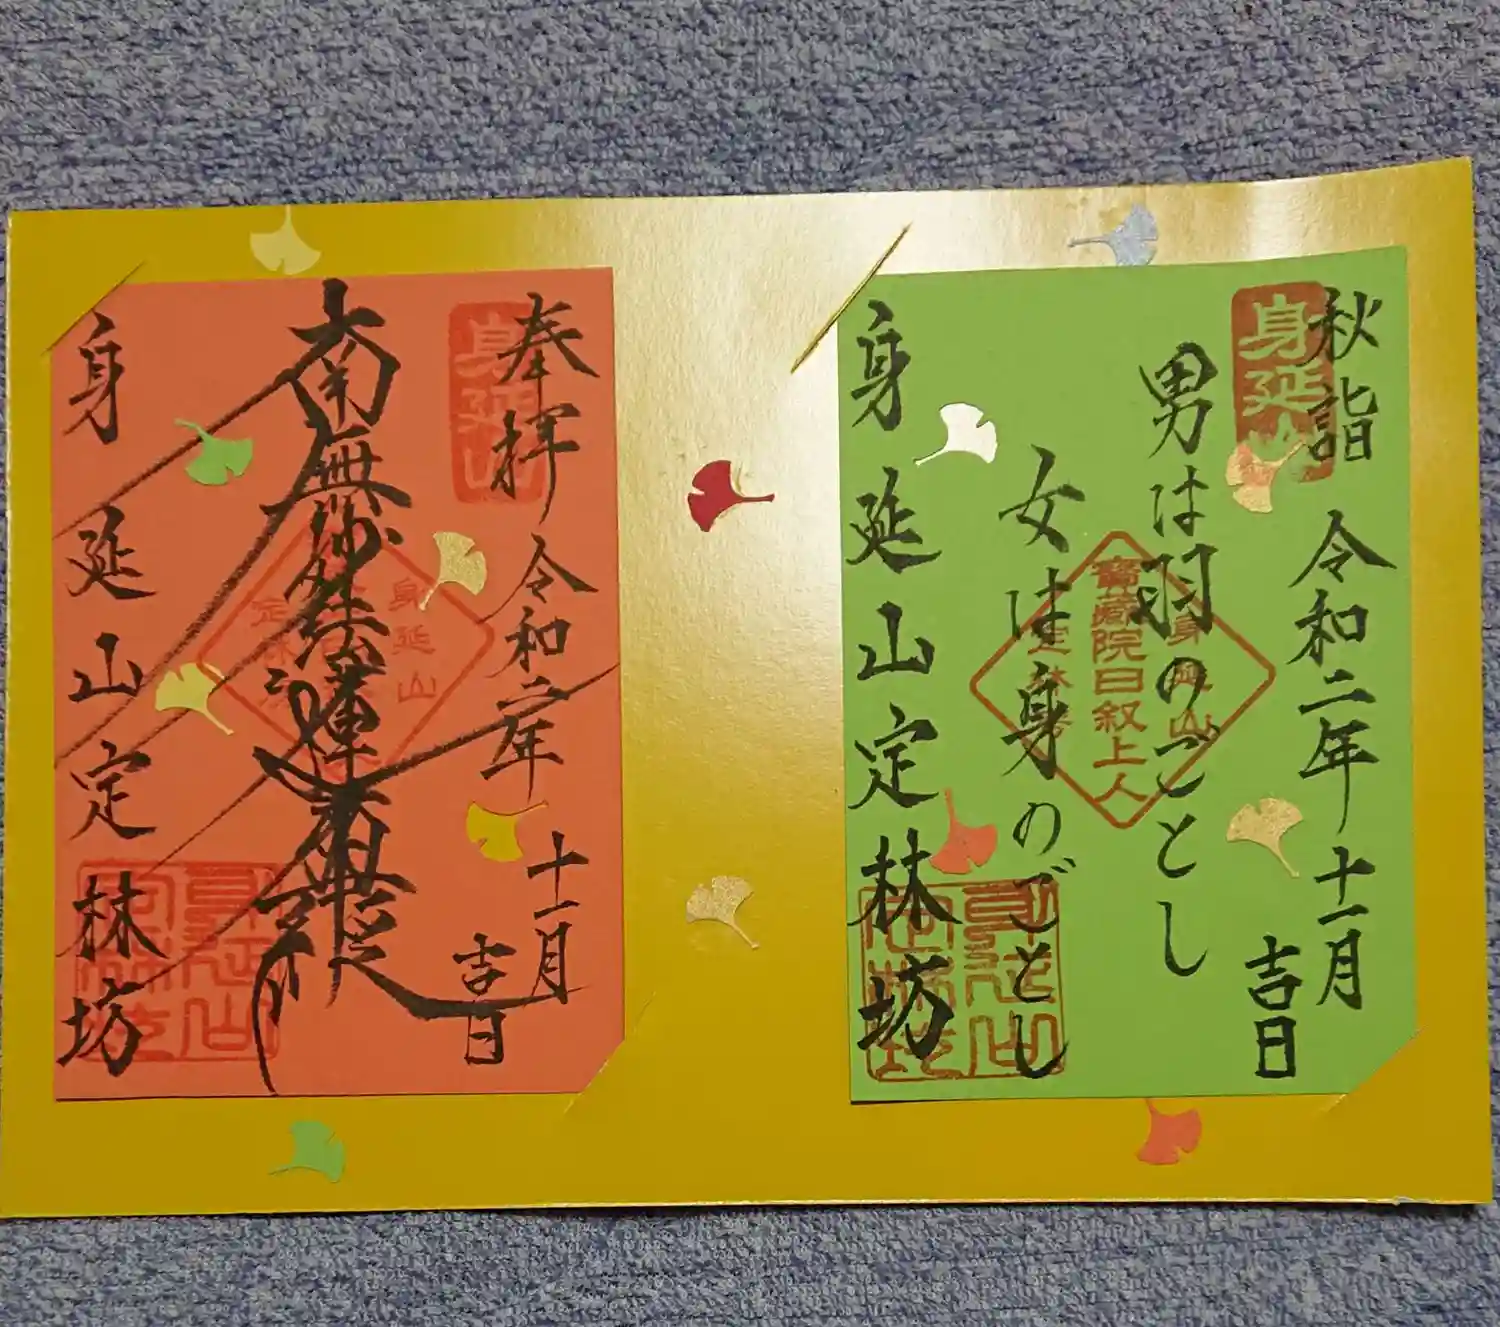 秋詣 令和二年 十一月
吉日
男は羽のごとし
女は身のごとし
身延山定林坊
身延山
身延山
寶蔵院日叙上人
定林坊
奉拝 令和二年 十一月
吉日
南無妙法蓮華経
身延山定林坊
身延山
身延山